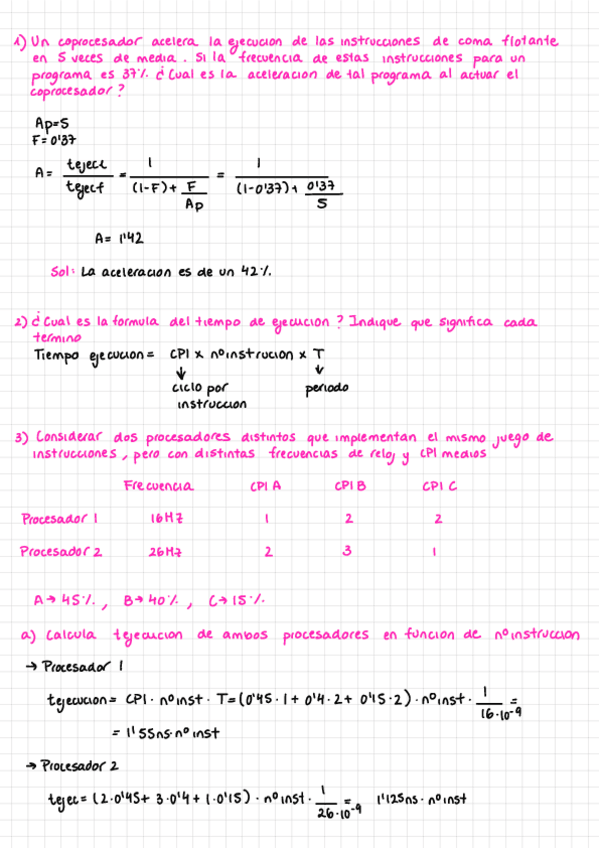 1) Un coprocesador acelera la ejecucion de las instrucciones de coma flotante
en 5 veces de media. Si la frecuencia de estas instrucciones para un
programa es 37% ¿Cual es la aceleracion de tal programa al actuar el
coprocesador?
Ap=5
F=0'37
A= tejec1 / tejecf = 1 / (1-F)+ F/Ap = 1 / (1-0'37)+ 0'37/5
A= 1'42
Sol: La aceleracion es de un 42%.
2) ¿Cual es la formula del tiempo de ejecucion? Indique que significa cada
termino
Tiempo ejecucion= CPI x noinstrucion x T
↓ ↓
ciclo por periodo
instruccion
3) Considerar dos procesadores distintos que implementan el mismo juego de
instrucciones, pero con distintas frecuencias de reloj y CPI medios
Frecuencia CPI A CPI B CPI C
Procesador 1 1GHz 1 2 2
Procesador 2 2GHz 2 3 1
A→45%, B→40%, C→15%.
a) Calcula tejecucion de ambos procesadores en funcion de noinstruccion
→ Procesador 1
tejecucion= CPI · noinst · T=(0'45·1+0'4·2+0'15·2)·noinst· 1/1G·10-9 =
= 1'55ns·noinst
→ Procesador 2
tejec=(2·0'45+3·0'4+1·0'15)·noinst· 1/2G·10-9 = 1'125ns·noinst